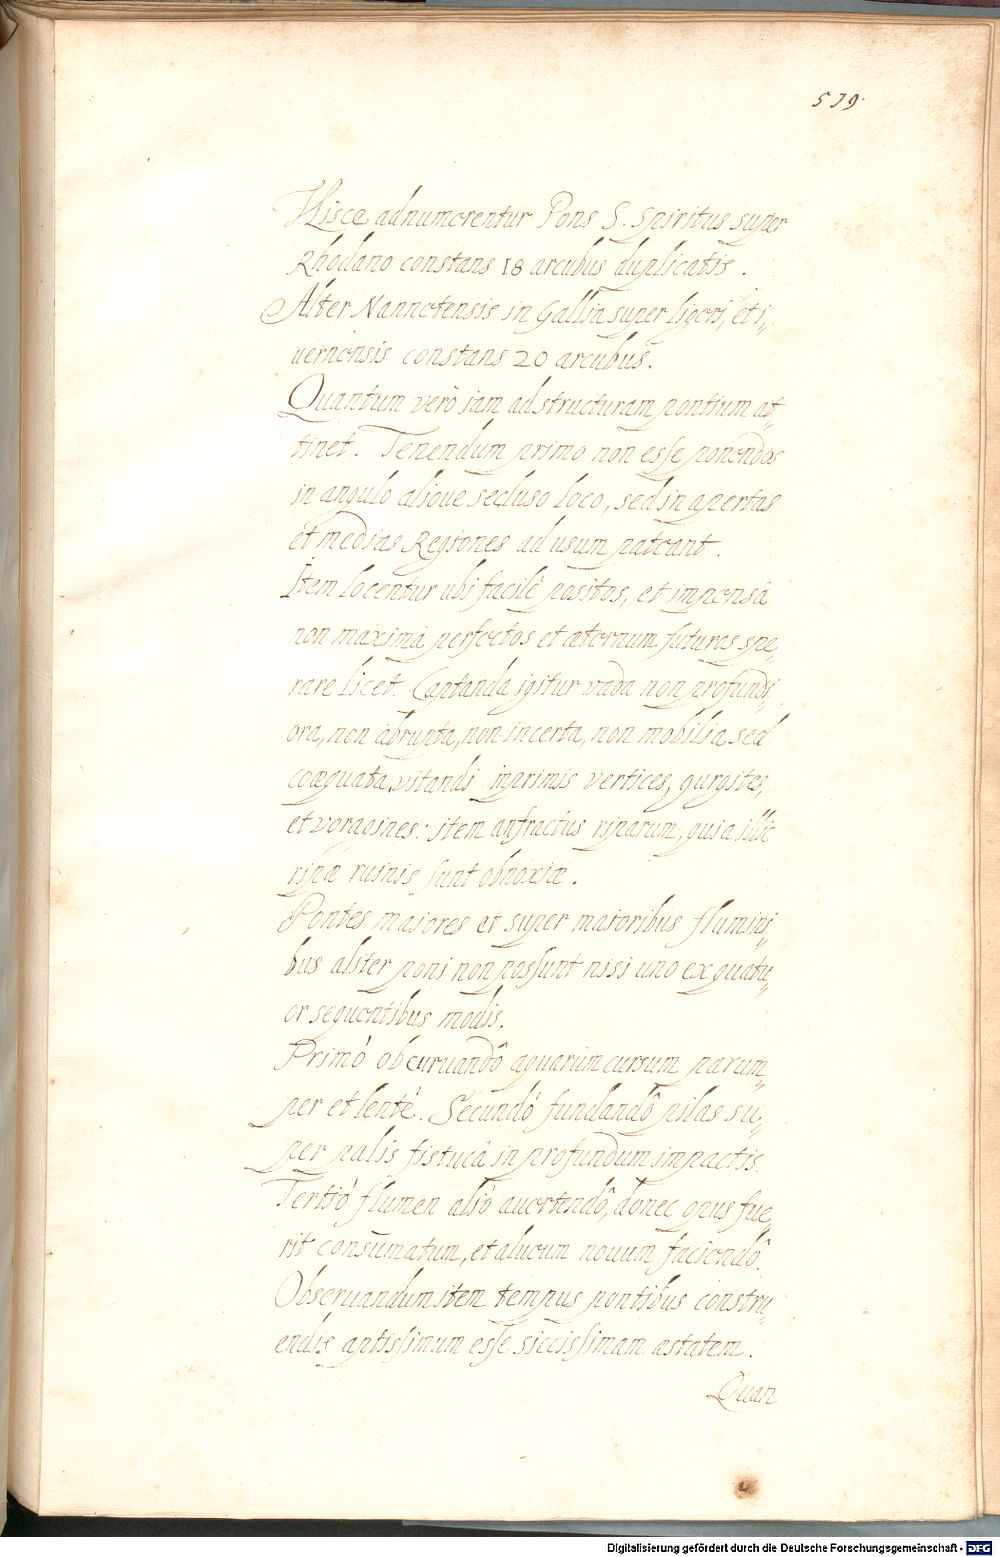 539.
Hisce adnumerentur Pons S. Spiritus super
Rhodano constans 18 arcubus duplicatis.
Alter Nannetensis in Gallia super ligeri, et i„
uernensis constans 20 arcubus.
Quantum verò iam ad structuram pontium at„
tinet. Tenendum primo non esse ponendos
in angulo alioue secluso loco, sed in apertas
et medias Regiones ad usum pateant.
Item locentur ubi facilè positos, et impensâ
non maximâ perfectos et æternum futuros spe„
rare licet. Captanda igitur vada non profundi„
ora, non abrupta, non incerta, non mobilia sed
coæquata, vitandi inprimis vertices, gurgites,
et voragines: item anfractus riparum, quia illic
ripæ ruinis sunt obnoxiæ.
Pontes maiores et super maioribus flumini„
bus aliter poni non possunt nisi uno ex quatu„
or sequentibus modis.
Primó obcuruandô aquarum cursum parum„
per et lenté. Secundó fundandô pilas su„
per palis fistucâ in profundum impactis.
Tertió flumen alió auertendô, donec opus fue„
rit consumatum, et alueum nouum faciendô.
Obseruandum item tempus pontibus constru„
endis aptissimum esse siccissimam æstatem.
Quan
Digitalisierung gefördert durch die Deutsche Forschungsgemeinschaft - DFG